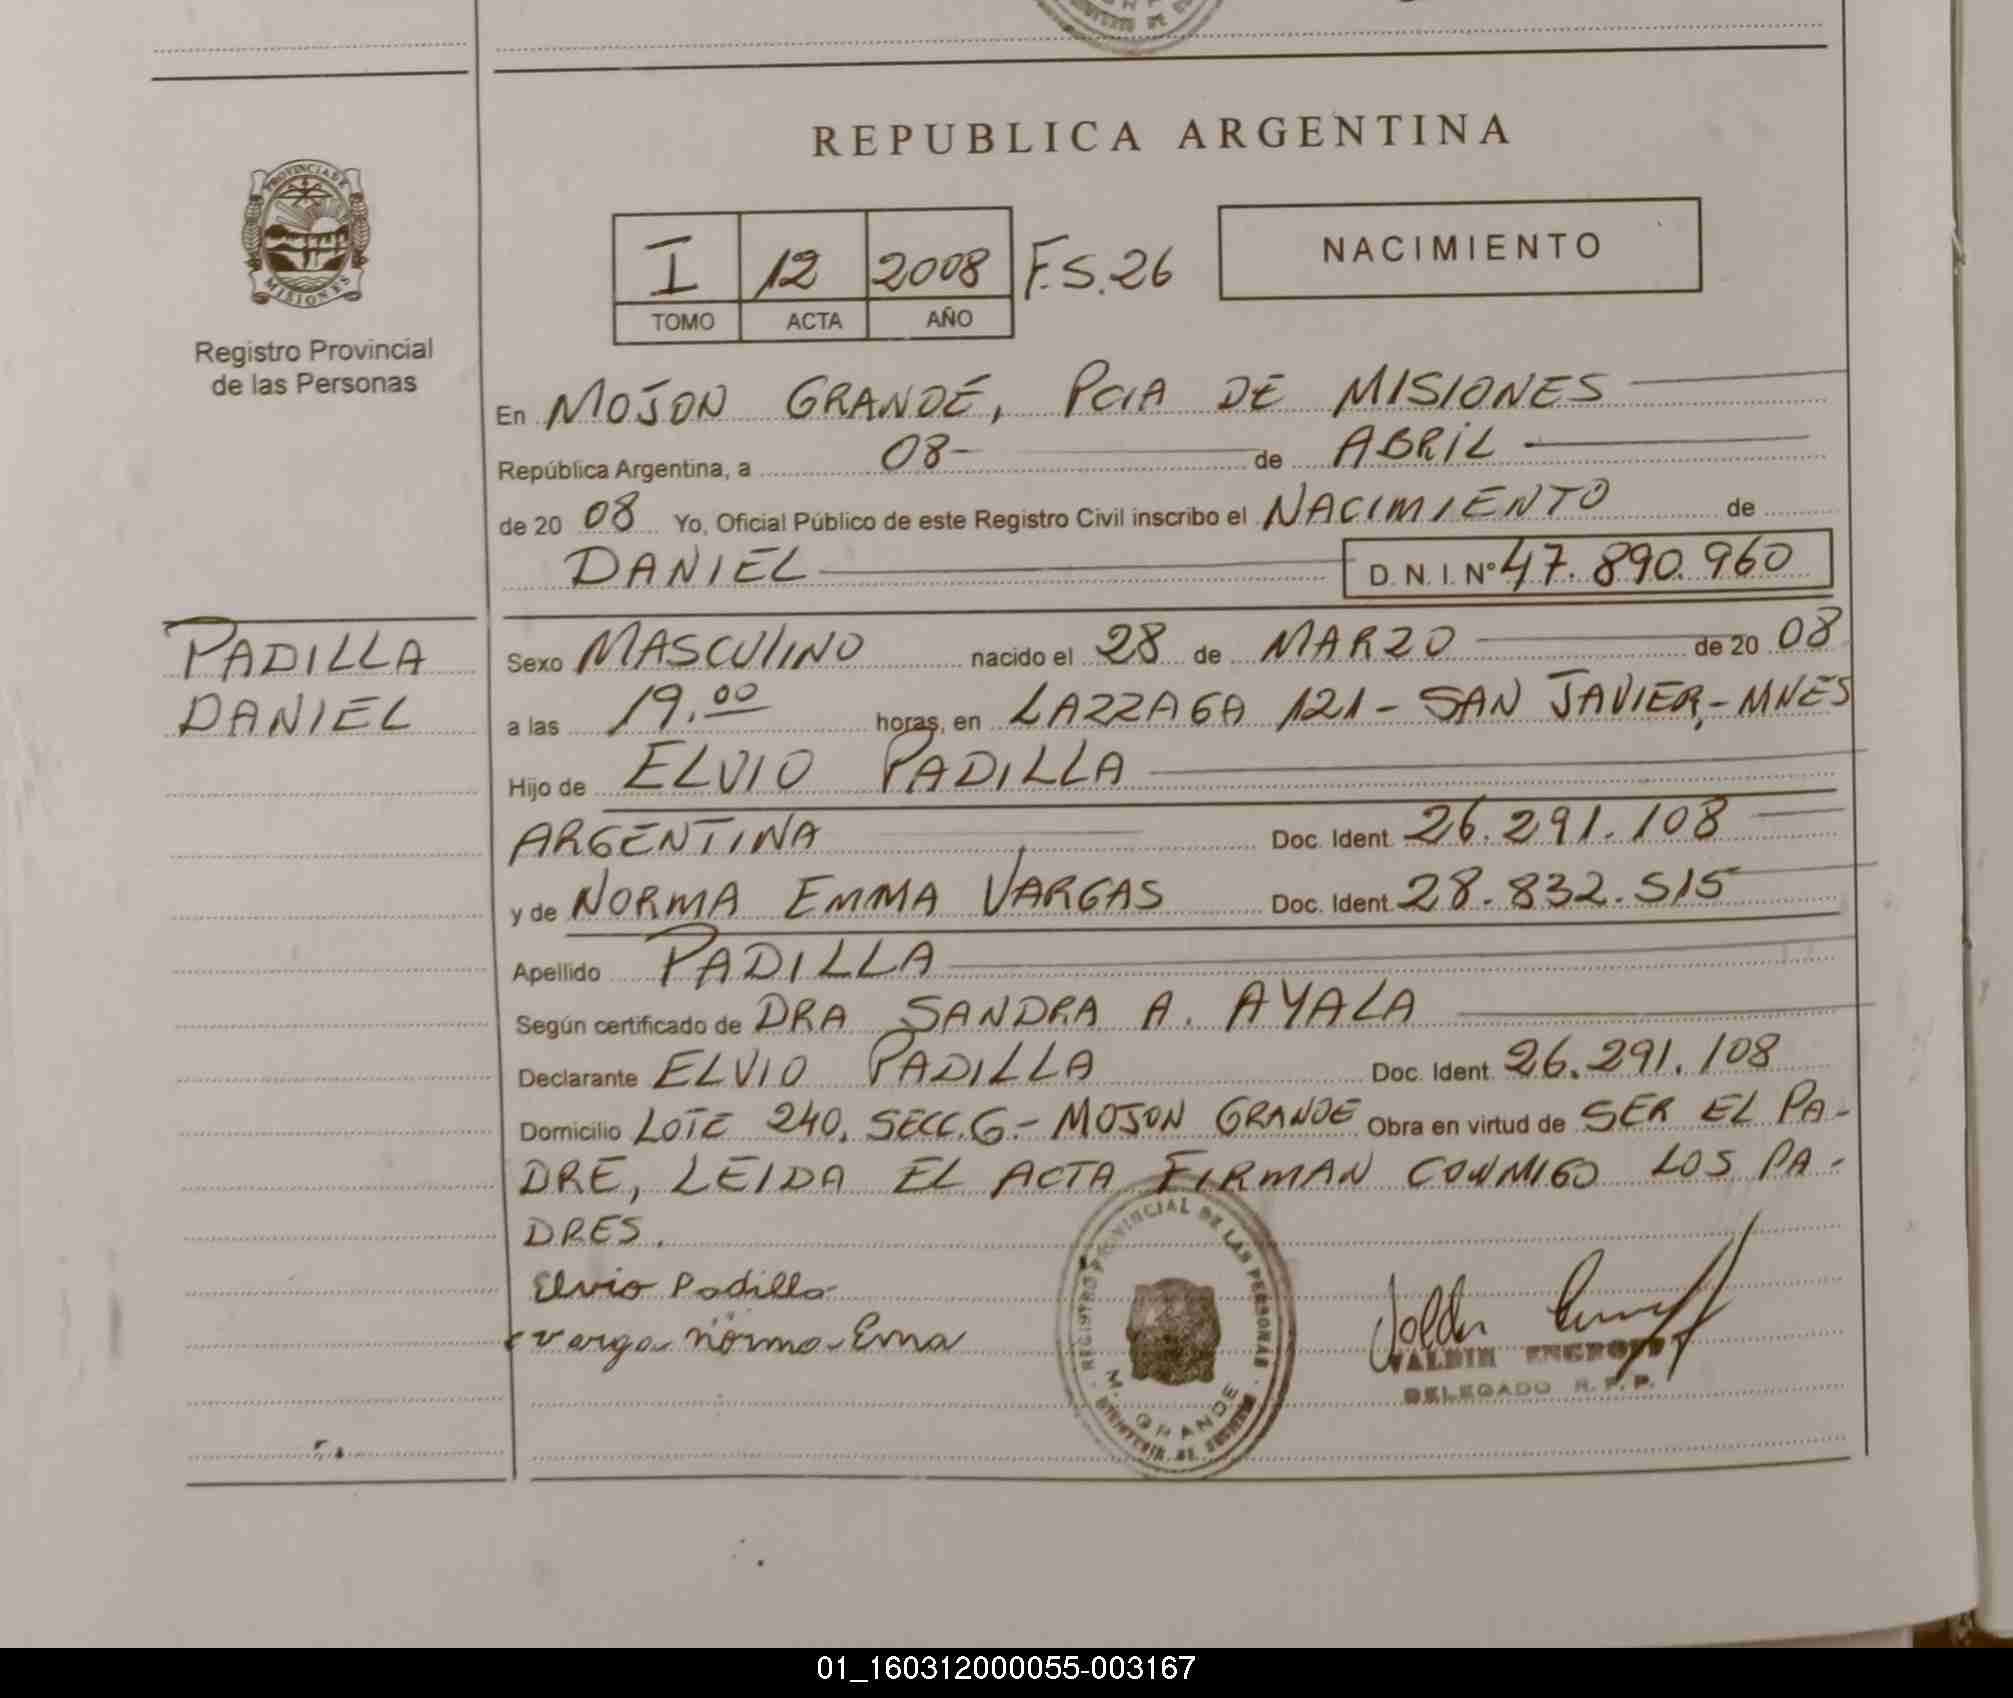 REPUBLICA ARGENTINA
PROVINCIA DE
MISIONES
Registro Provincial
de las Personas
I 12 2008 F.S.26
TOMO ACTA AÑO
NACIMIENTO
En MOJON GRANDE, PCIA DE MISIONES
República Argentina, a 08- de ABRIL
de 20 08 Yo, Oficial Público de este Registro Civil inscribo el NACIMIENTO de
DANIEL D.N.I. Nº 47.890.960
PADILLA
DANIEL
Sexo MASCULINO nacido el 28 de MARZO de 20 08
a las 19.00 horas, en LAZZAGA 121- SAN JAVIER,- MNES
Hijo de ELVIO PADILLA
ARGENTINA Doc. Ident. 26.291.108
y de NORMA EMMA VARGAS Doc. Ident. 28.832.515
Apellido PADILLA
Según certificado de DRA SANDRA A. AYALA
Declarante ELVIO PADILLA Doc. Ident. 26.291.108
Domicilio LOTE 240. SECC.G.- MOJON GRANDE Obra en virtud de SER EL PA-
DRE, LEIDA EL ACTA FIRMAN CONMIGO LOS PA-
DRES.
Elvio Padilla
varga norma Ema
REGISTRO PROVINCIAL DE LAS PERSONAS
M. GRANDE
VALDIR
DELEGADO R.P.P.
01_160312000055-003167